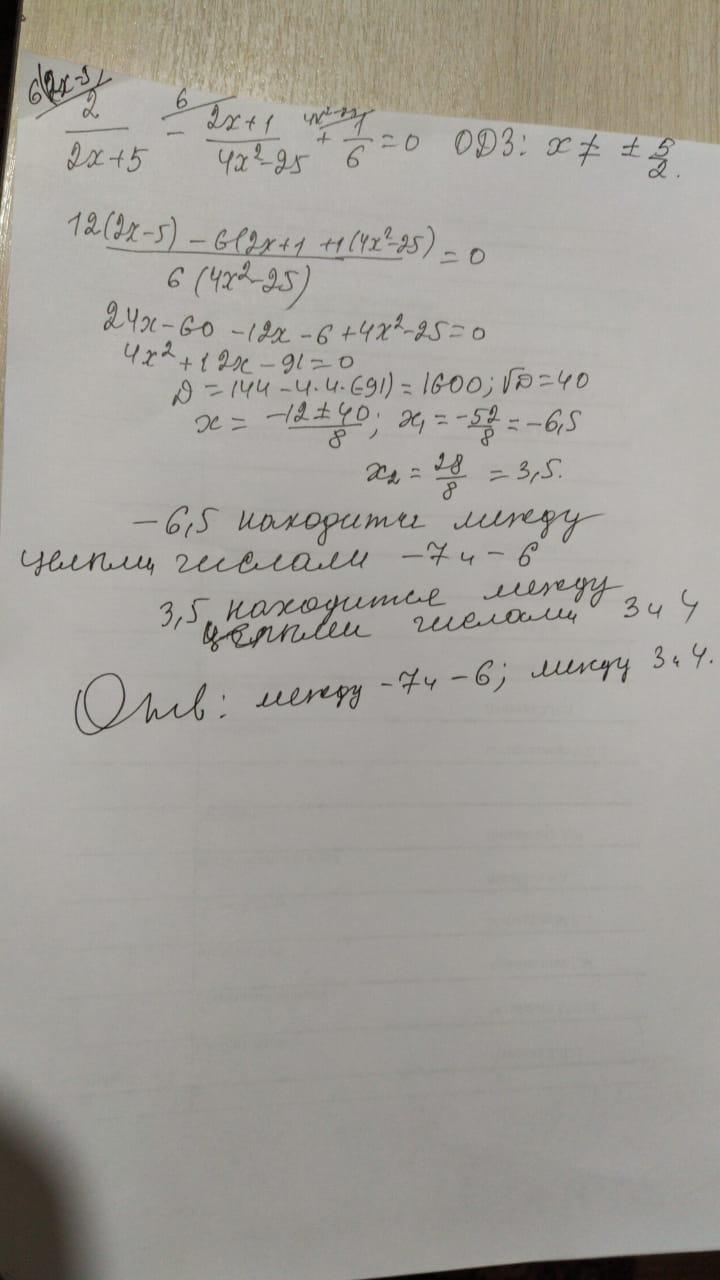 6(2x-5)/ 6/ 4x²-25/
2/(2x+5) - (2x+1)/(4x²-25) + 1/6 = 0 ОДЗ: x ≠ ± 5/2.
(12(2x-5) - 6(2x+1 +1(4x²-25))/(6(4x²-25)) = 0
24x-60 -12x -6 +4x²-25=0
4x²+12x -91=0
D = 144 -4·4·(-91) = 1600; √D = 40
x = (-12±40)/8; x₁ = -52/8 = -6,5
x₂ = 28/8 = 3,5.
-6,5 находится между
целыми числами -7 и -6
3,5 находится между
целыми числами 3 и 4
Отв: между -7 и -6; между 3 и 4.